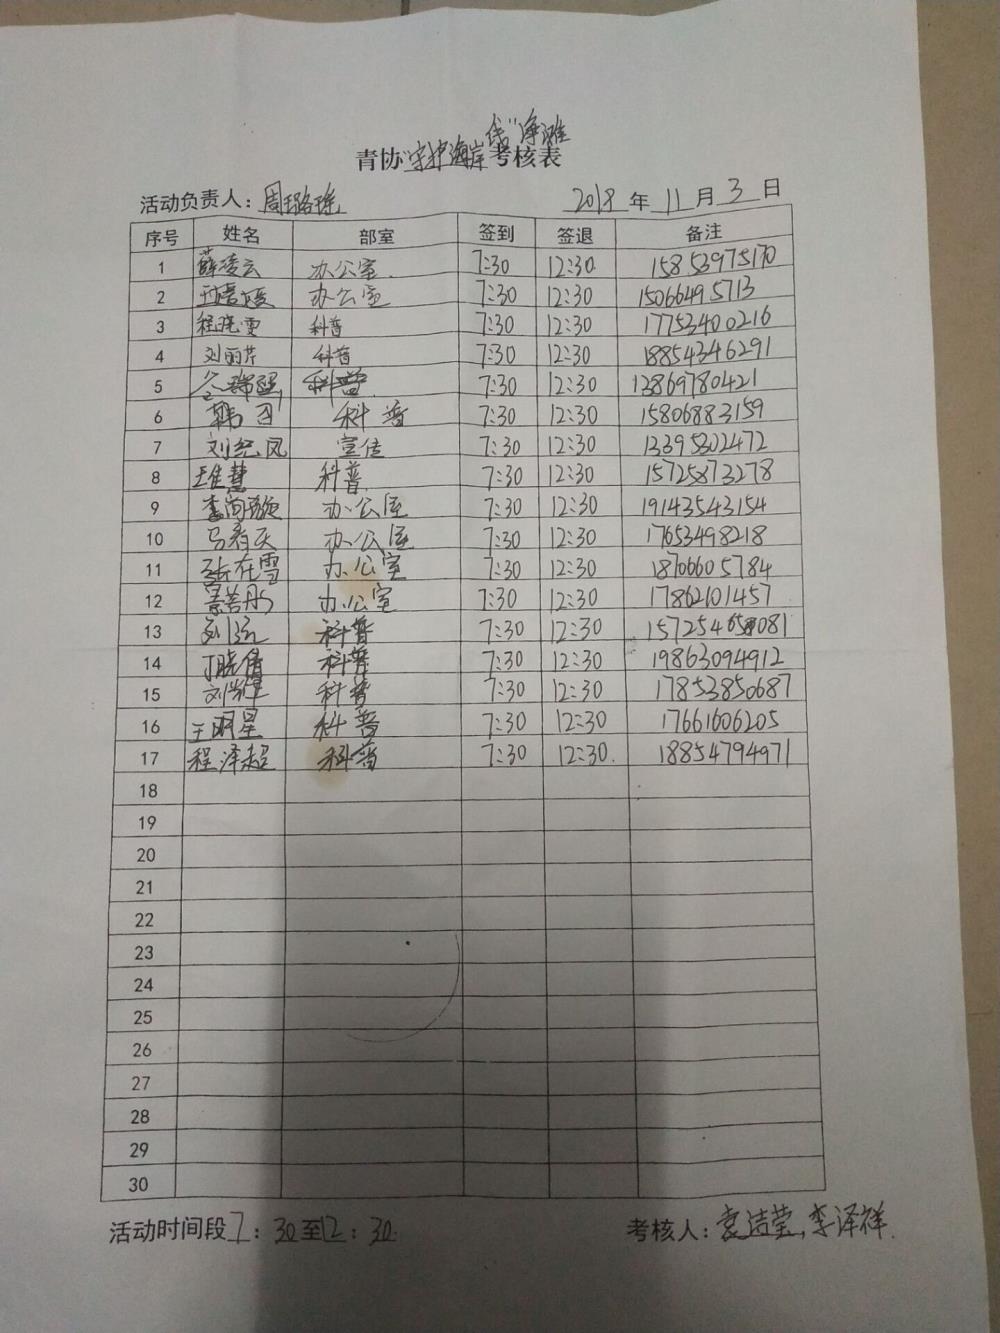 线"净滩
青协"守护海岸考核表
活动负责人：周璐瑶 2018年11月3日
序号 姓名 部室 签到 签退 备注
1 薛凌云 办公室 7:30 12:30 15853975170
2 办公室 7:30 12:30 15066495713
3 程晓雯 科普 7:30 12:30 17753400216
4 刘丽芹 科普 7:30 12:30 18854346291
5 科普 7:30 12:30 12869780421
6 韩 科普 7:30 12:30 15806883159
7 刘纪凤 宣传 7:30 12:30 13395302472
8 王佳慧 科普 7:30 12:30 15725873278
9 李尚璇 办公室 7:30 12:30 19143543154
10 马春天 办公室 7:30 12:30 17653498218
11 张在雪 办公室 7:30 12:30 18706605784
12 景若彤 办公室 7:30 12:30 17862101457
13 科普 7:30 12:30
14 丁晓倩 科普 7:30 12:30 19863094912
15 刘继 科普 7:30 12:30 17853850687
16 王明星 科普 7:30 12:30 17661606205
17 程泽超 科普 7:30 12:30 18854794971
18
19
20
21
22
23
24
25
26
27
28
29
30
活动时间段7：30至12：30 考核人：袁洁莹,李泽祥